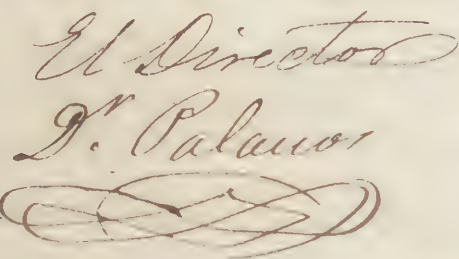 El Director
Dr. Palauos